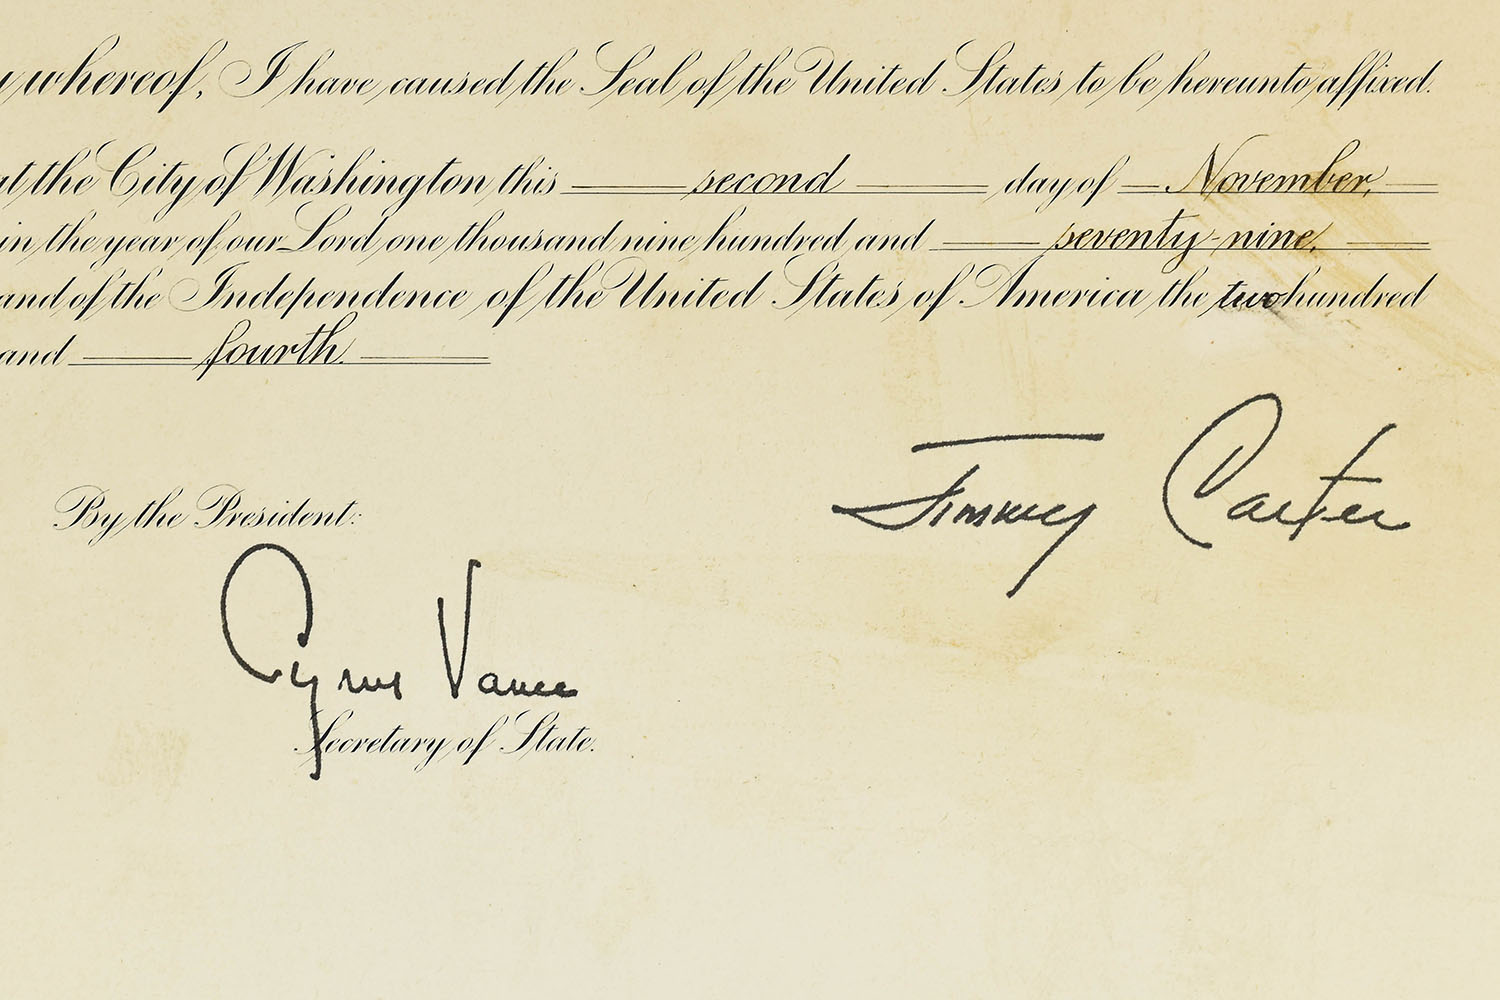 whereof, I have caused the Seal of the United States to be hereunto affixed.
at the City of Washington this second day of November,
in the year of our Lord one thousand nine hundred and seventy-nine,
and of the Independence of the United States of America the two hundred
and fourth.
Jimmy Carter
By the President:
Cyrus Vance
Secretary of State.